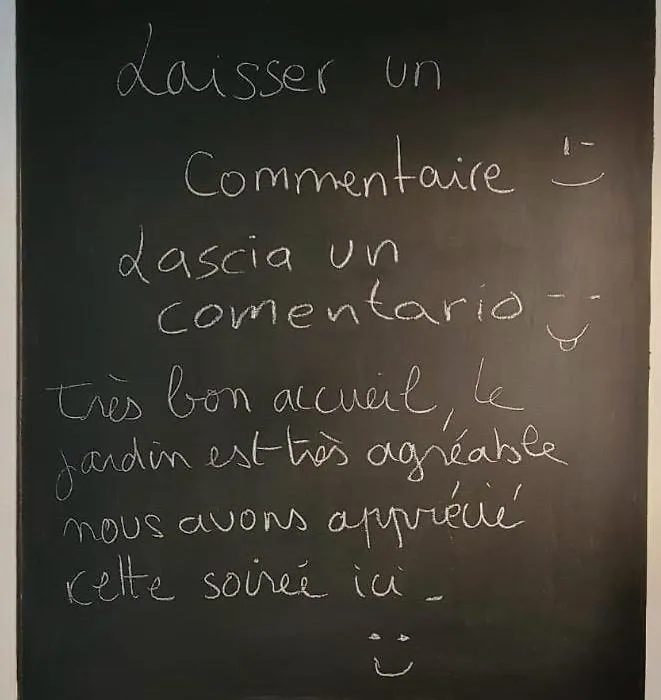 Laisser un
Commentaire
Lascia un
comentario
très bon accueil, le
jardin est très agréable
nous avons apprécié
cette soireé ici -